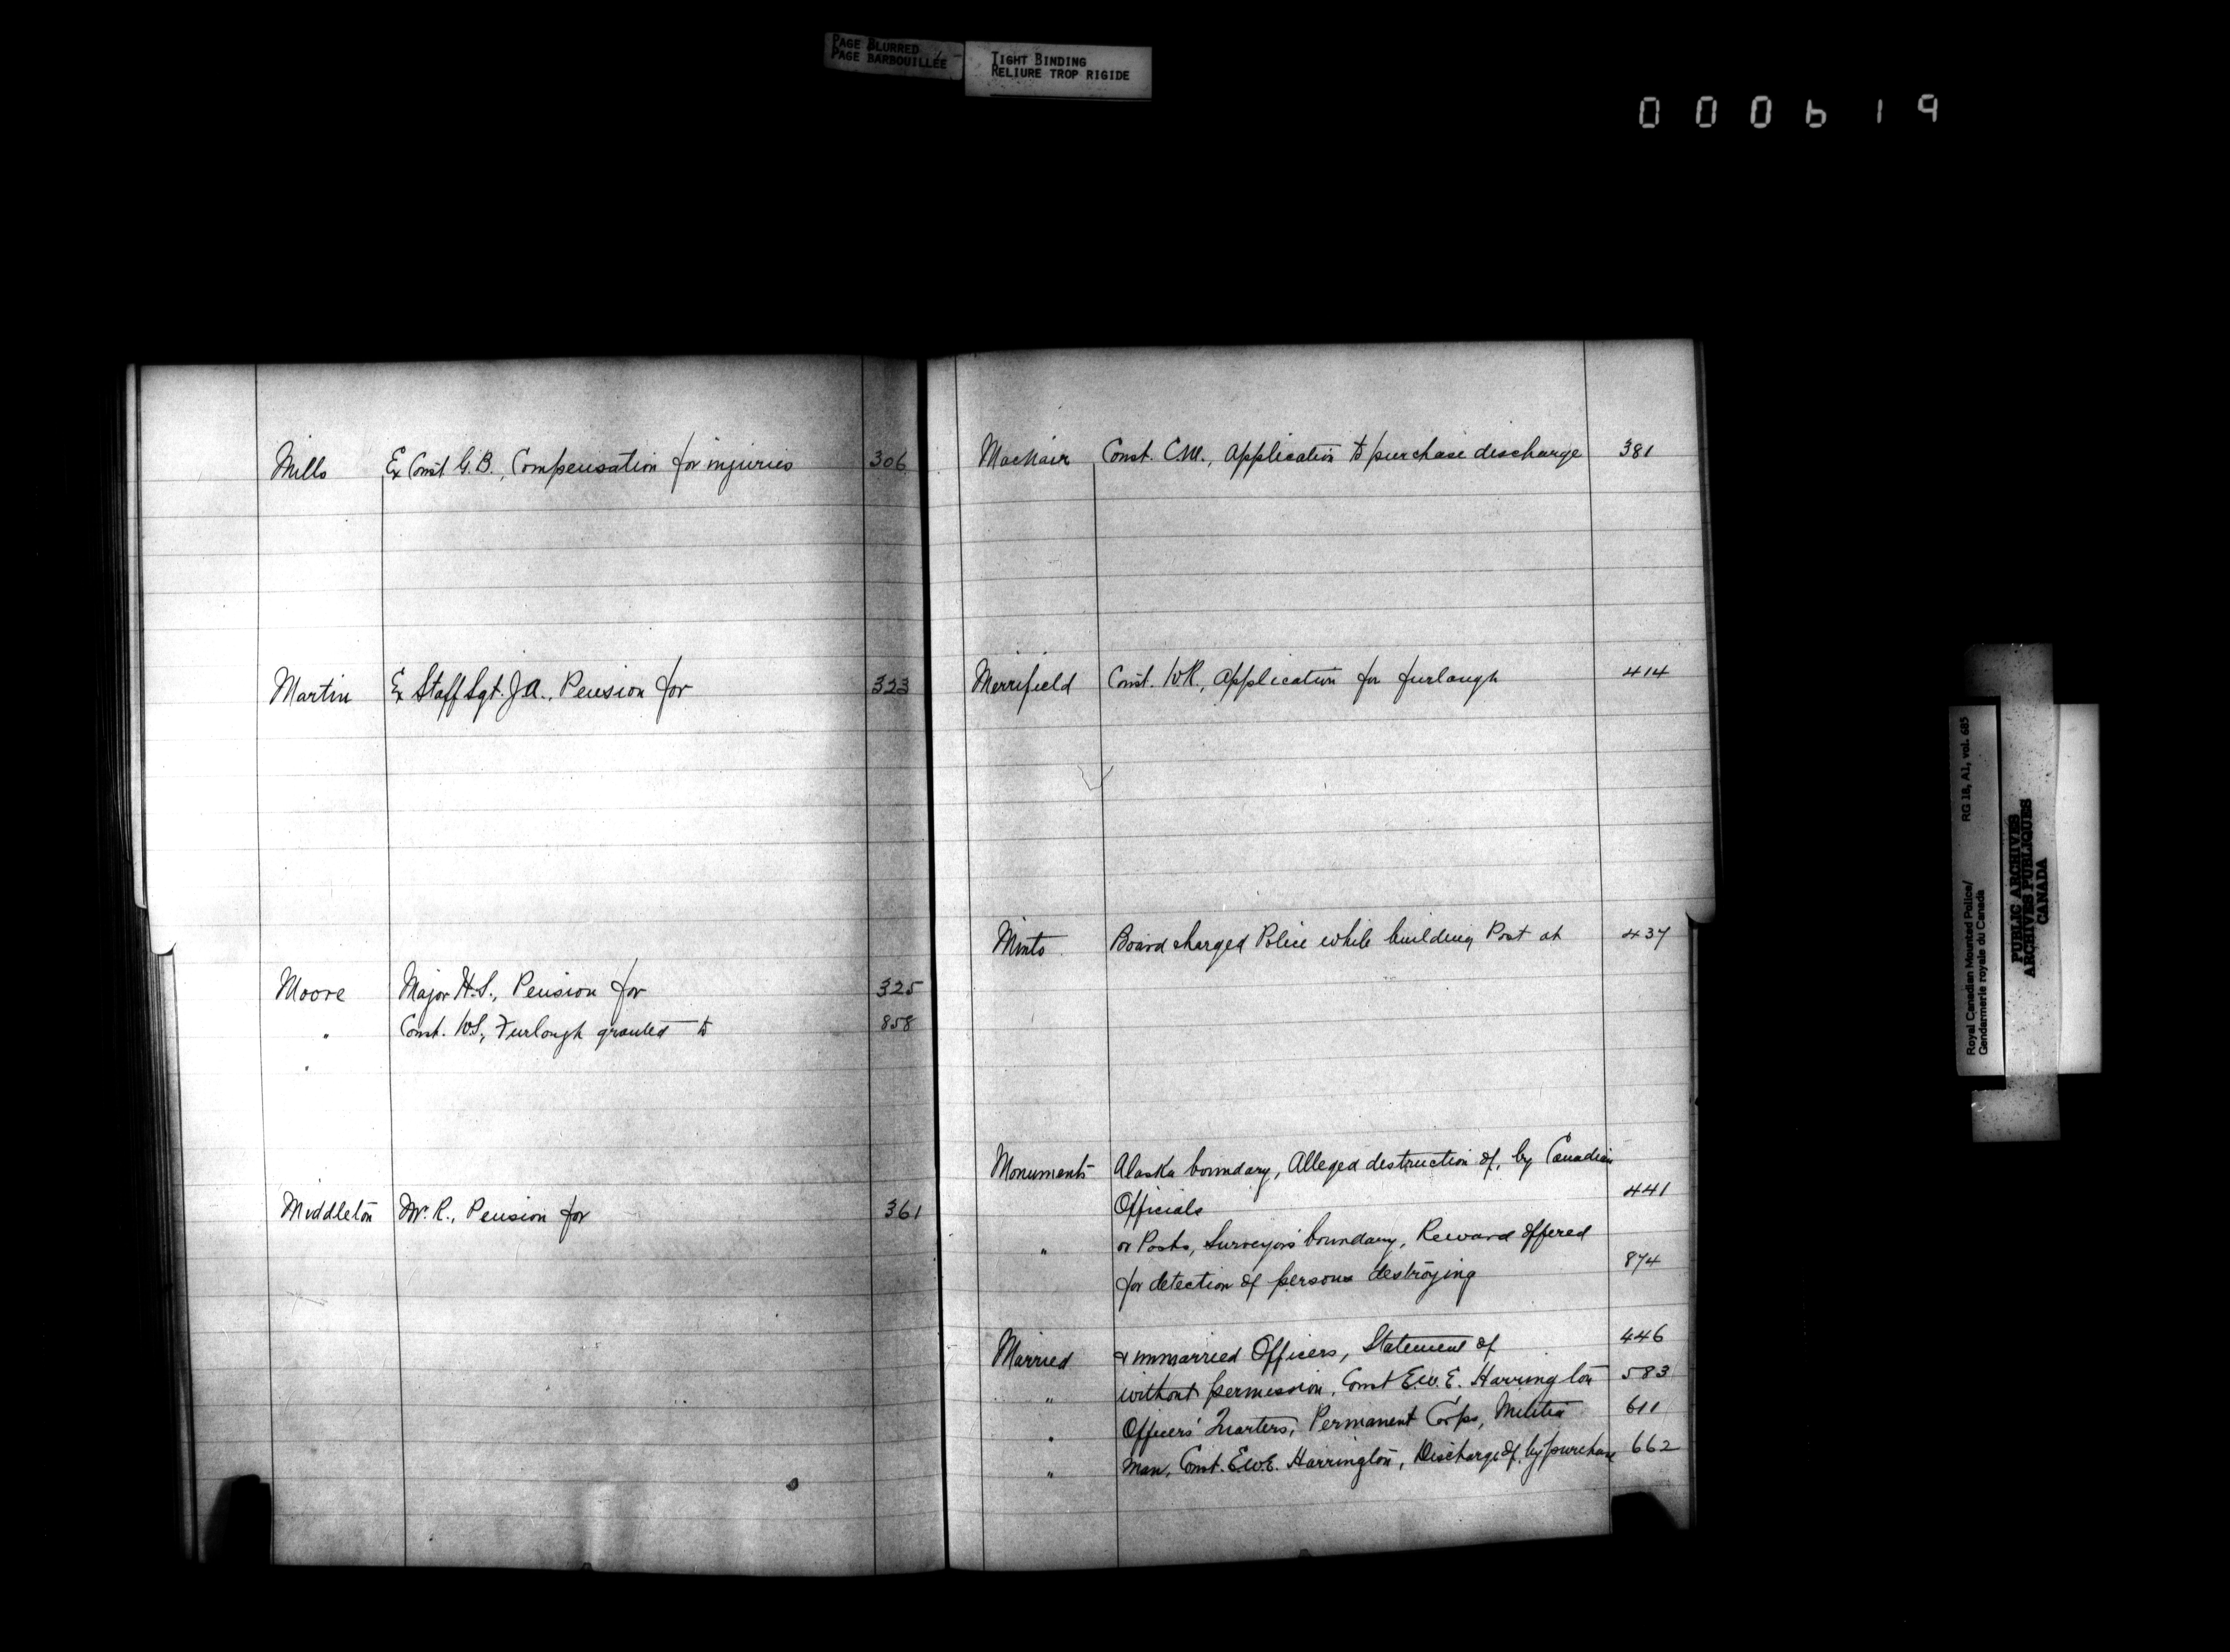 PAGE BLURRED
PAGE BARBOUILLÉE
TIGHT BINDING
RELIURE TROP RIGIDE
000619
Mills Ex Const G.B., Compensation for injuries 306
Martin Ex Staff Sgt. J.A., Pension for 323
Moore Major H.S., Pension for 325
" Const. W.S., Furlough granted to 858
"
Middleton Mr. R., Pension for 361
MacNair Const. C.M., Application to purchase discharge 381
Merrifield Const. W.R., Application for furlough 414
Minto Board charged Police while building Post at 437
Monuments Alaska boundary, Alleged destruction of, by Canadian
Officials 441
" or Posts, Surveyors boundary, Reward offered
for detection of persons destroying 874
Married & unmarried Officers, Statement of 446
" without permission, Const E.W.E. Harrington 583
" Officers' Quarters, Permanent Corps, Militia 611
" Man, Const. E.W.E. Harrington, Discharge of, by purchase 662
Royal Canadian Mounted Police/
Gendarmerie royale du Canada
RG 18, A1, vol. 685
PUBLIC ARCHIVES
ARCHIVES PUBLIQUES
CANADA